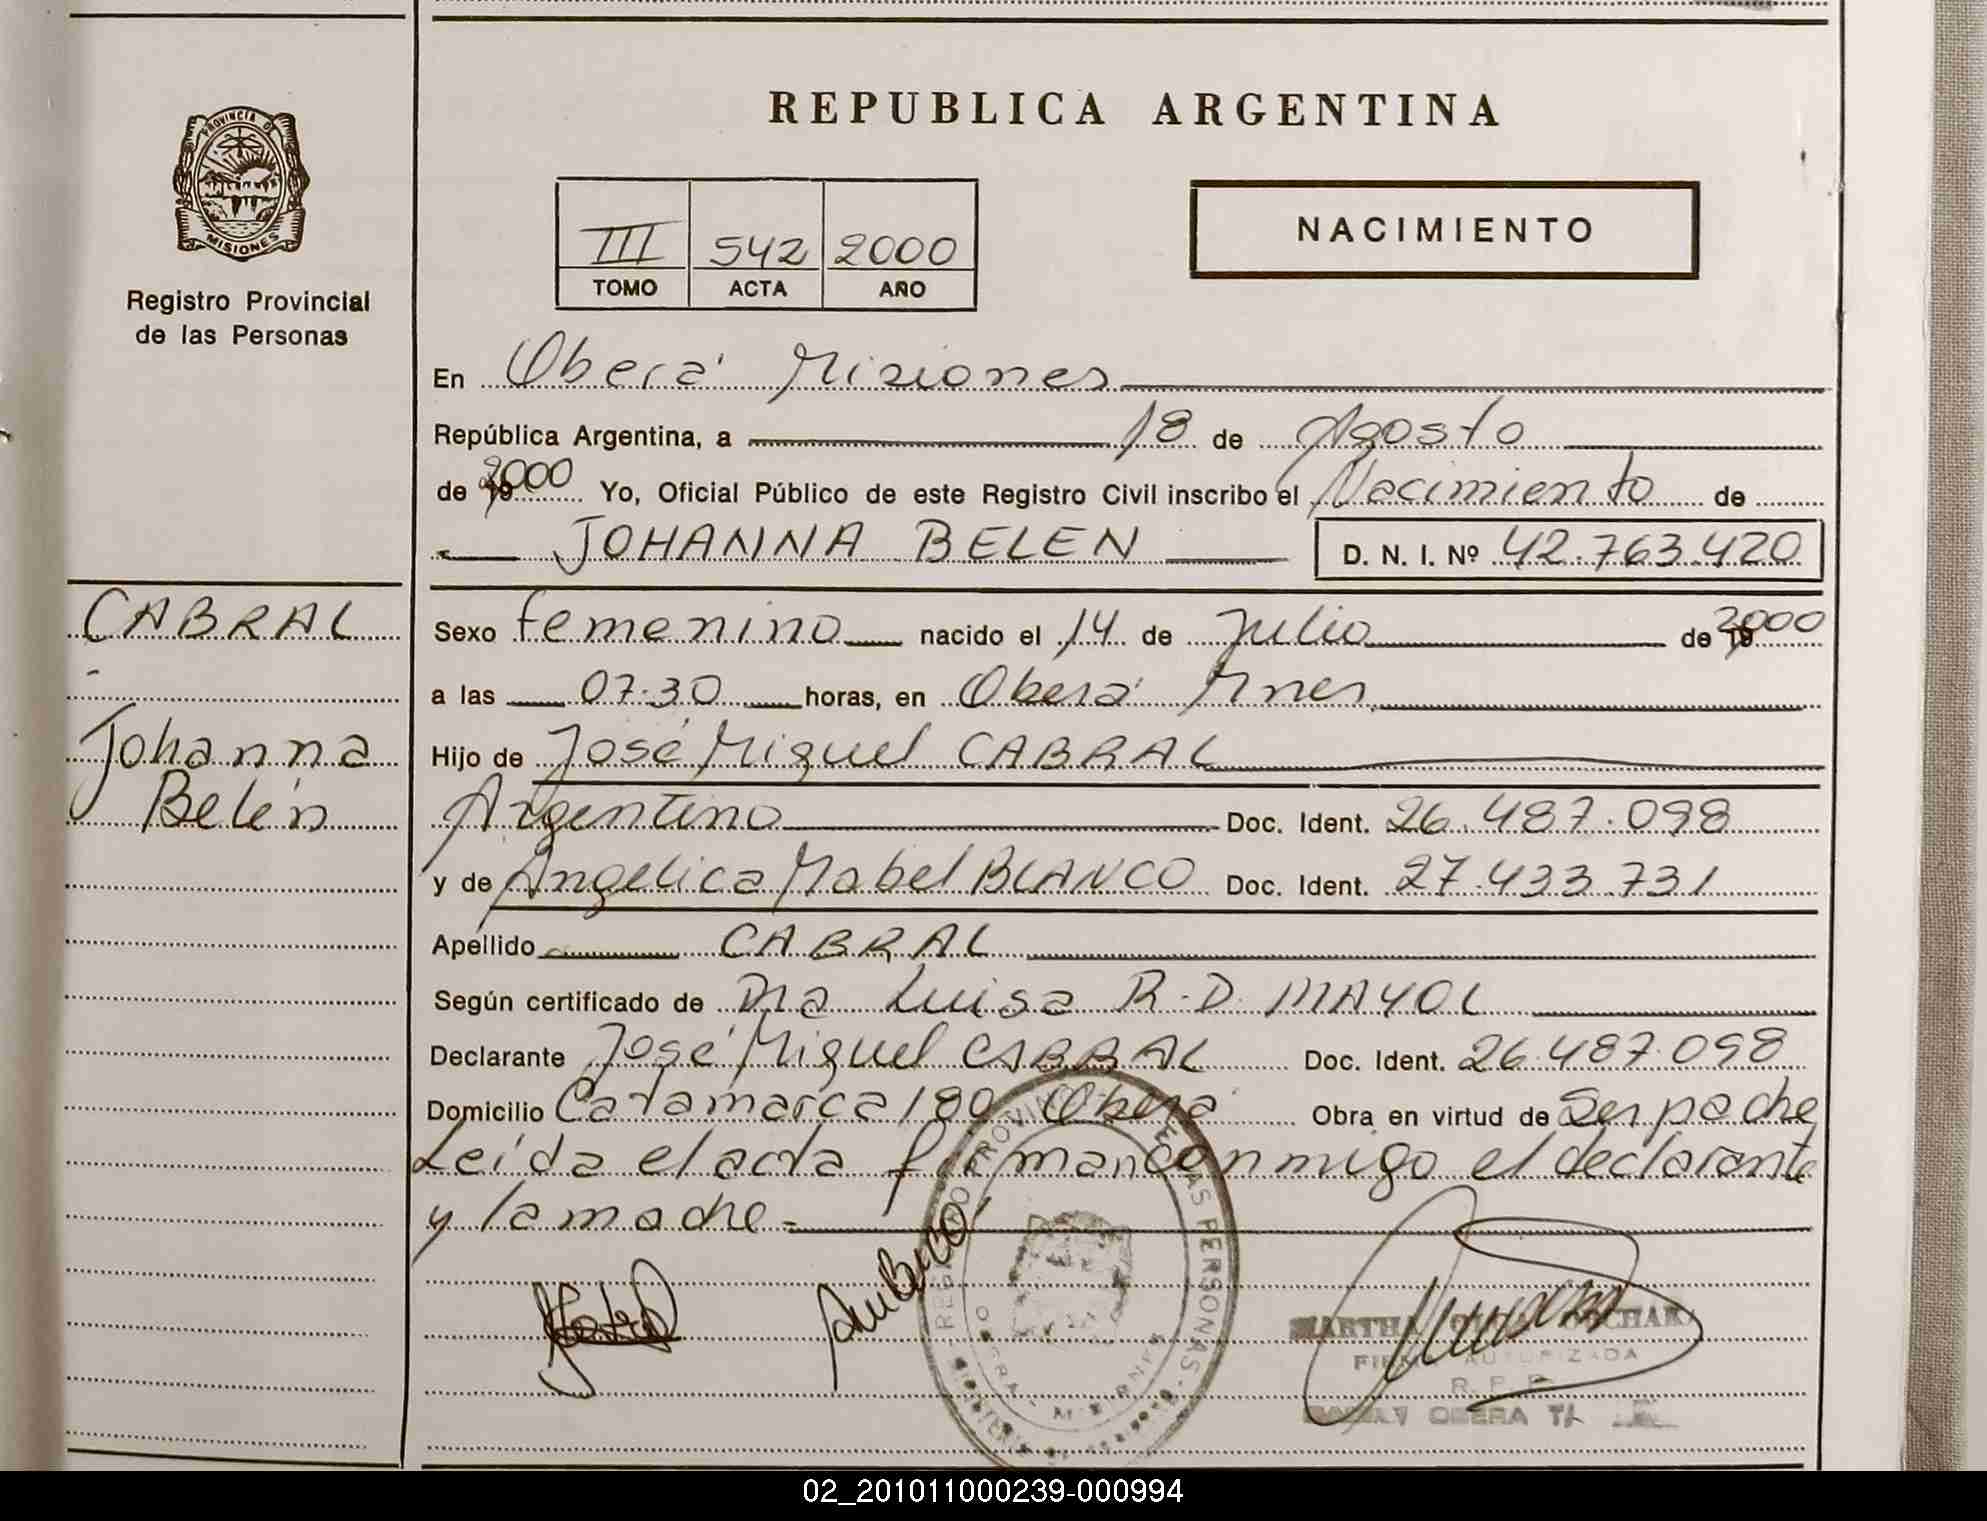 REPUBLICA ARGENTINA
PROVINCIA D
MISIONES
Registro Provincial
de las Personas
III 542 2000
TOMO ACTA AÑO
NACIMIENTO
En Oberá Misiones
República Argentina, a 18 de Agosto
de 2000 Yo, Oficial Público de este Registro Civil inscribo el Nacimiento de
JOHANNA BELEN D. N. I. Nº 42.763.420
CABRAL
Johanna
Belén
Sexo femenino nacido el 14 de Julio de 2000
a las 07.30 horas, en Oberá Mnes
Hijo de José Miguel CABRAL
Argentino Doc. Ident. 26.487.098
y de Angelica Mabel BLANCO Doc. Ident. 27.433.731
Apellido CABRAL
Según certificado de Dra Luisa R.D. MAYOL
Declarante José Miguel CABRAL Doc. Ident. 26.487.098
Domicilio Catamarca 180 Oberá Obra en virtud de Ser padre
Leída el acta firman conmigo el declarante
y la madre.=
REGISTRO PROVIN PERSONAS
MARTHA
FIRMA AUTORIZADA
R. P. P.
OBERA
02_201011000239-000994